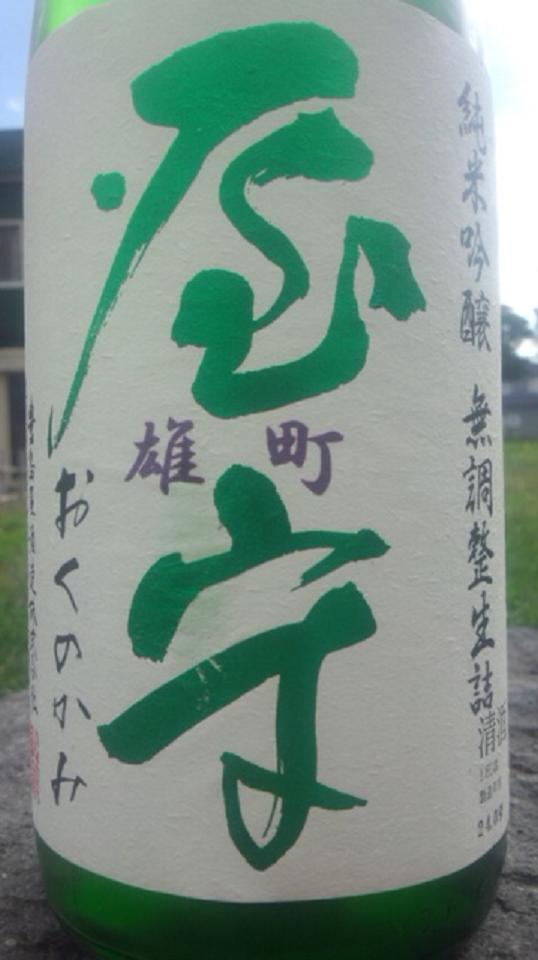 純米吟醸 無調整生詰
清酒
24.09
屋守
雄町
おくのかみ